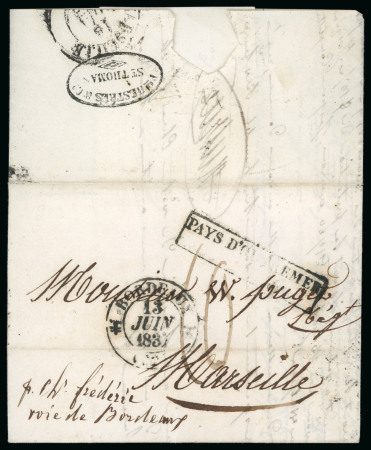 ST THOMAS
PAYS D'OUTREMER
BORDEAUX
13
JUIN
1837
Monsieur W. Puget
Négt
Marseille
p. Ch. frédéric
voie de Bordeaux